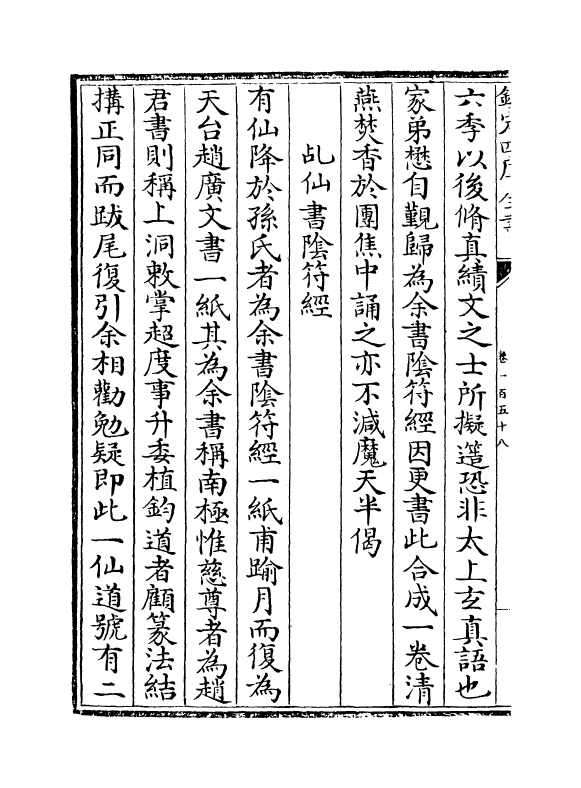 欽定四庫全書
卷一百五十八
六季以後脩真績文之士所擬譔恐非太上玄真語也
家弟懋自覲歸為余書陰符經因更書此合成一卷清
燕焚香於團焦中誦之亦不減魔天半偈
乩仙書陰符經
有仙降於孫氏者為余書陰符經一紙甫踰月而復為
天台趙廣文書一紙其為余書稱南極惟慈尊者為趙
君書則稱上洞敕掌超度事升委植鈞道者顧篆法結
搆正同而跋尾復引余相勸勉疑即此一仙道號有二